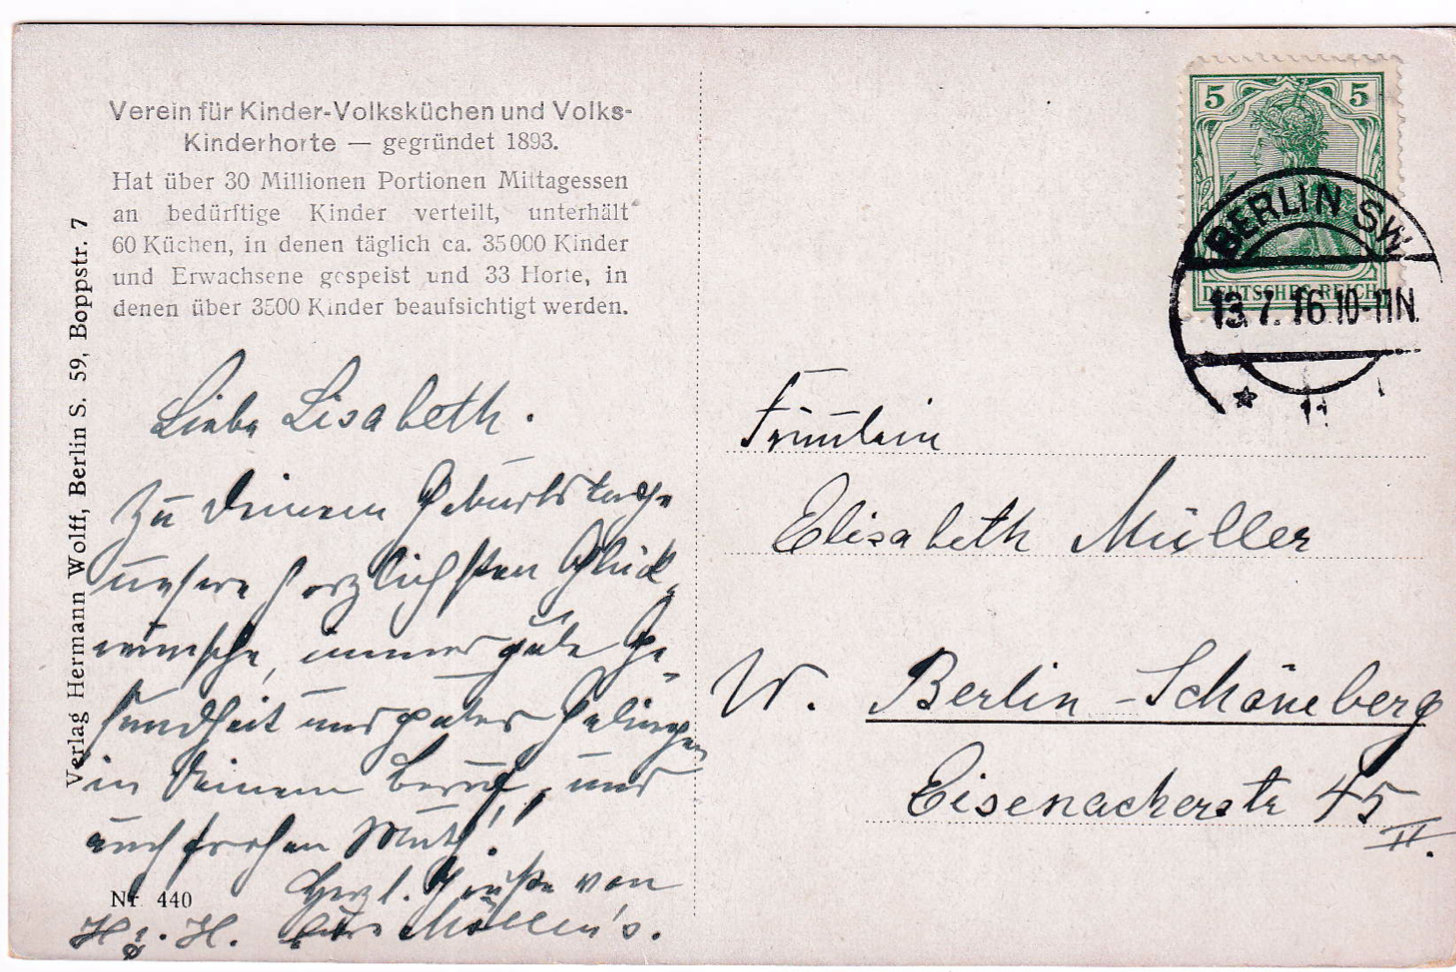 Verein für Kinder-Volksküchen und Volks-
Kinderhorte — gegründet 1893.
Hat über 30 Millionen Portionen Mittagessen
an bedürftige Kinder verteilt, unterhält
60 Küchen, in denen täglich ca. 35000 Kinder
und Erwachsene gespeist und 33 Horte, in
denen über 3500 Kinder beaufsichtigt werden.
Verlag Hermann Wolff, Berlin S. 59, Boppstr. 7
Liebe Lisabeth.
Zu deinem Geburtstage
unsere herzlichsten Glück-
wünsche, immer gute Ge-
sundheit und gutes Gelingen
in deinem Beruf, und
auch frohen Muth!
Herzl. Grüße von
H. H. Möllen's.
Nr. 440
5 5
DEUTSCHES REICH
BERLIN SW
13.7.16.10-11N.
Fräulein
Elisabeth Müller
W. Berlin-Schöneberg
Eisenacherstr 45
II.